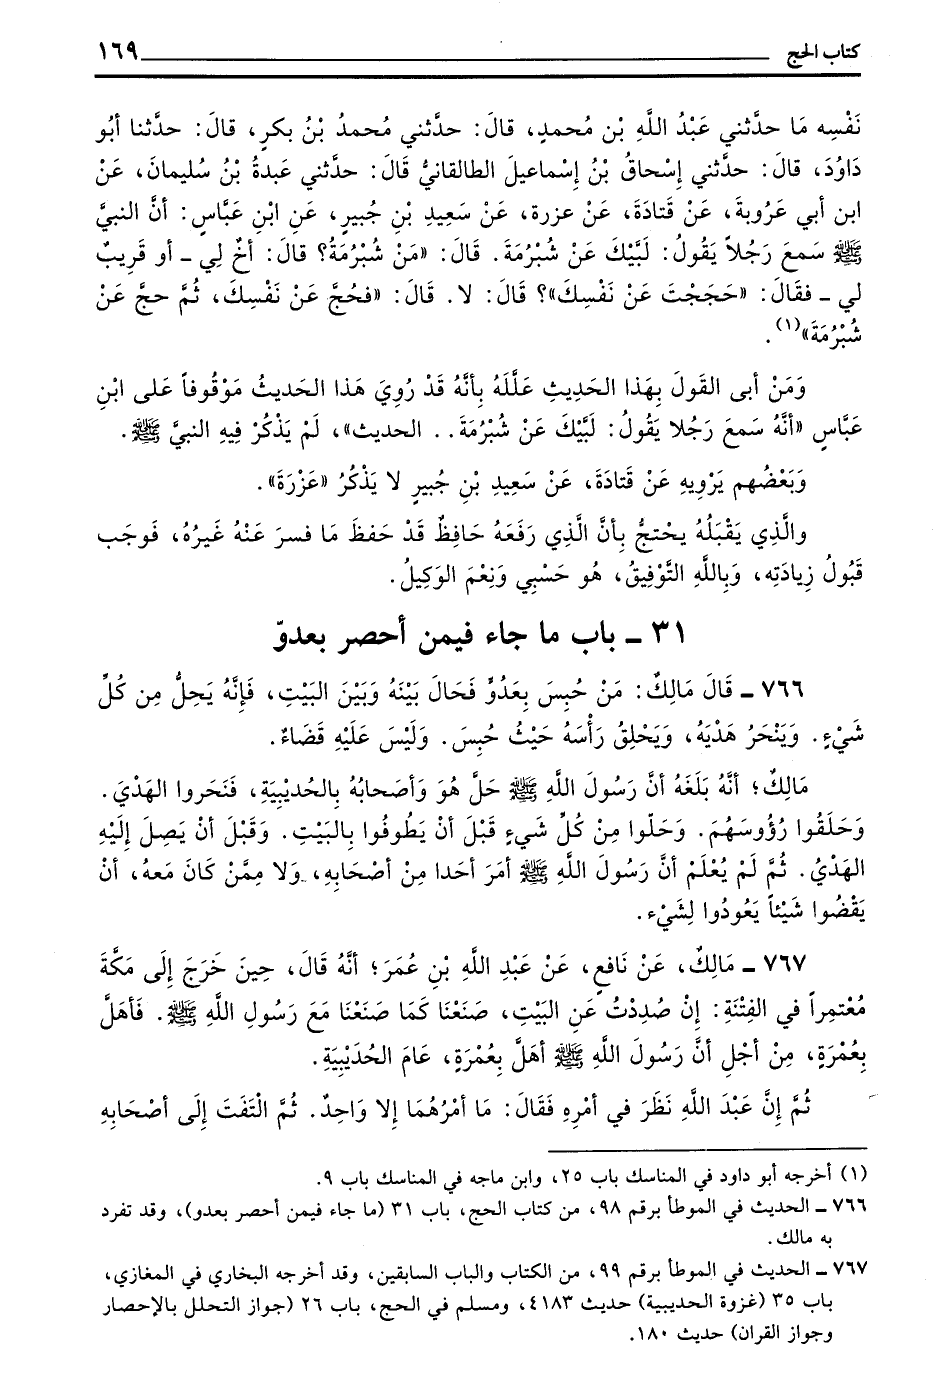 كتاب الحج ١٦٩
نَفْسِه مَا حدَّثني عَبْدُ اللَّهِ بْن مُحمدٍ، قالَ: حدَّثني مُحمدُ بْنُ بكرٍ، قالَ: حدَّثنا أبُو
دَاوُدَ، قالَ: حدَّثني إسْحاقُ بْنُ إسْماعيلَ الطالقانيُّ قَالَ: حدَّثني عَبدةُ بْنُ سُليمانَ، عَنْ
ابن أبي عَرُوبةَ، عَنْ قَتادَةَ، عَنْ عزرة، عَنْ سَعِيدِ بْنِ جُبيرٍ، عَنِ ابْنِ عَبَّاسٍ: أنَّ النبيَّ
ﷺ سَمعَ رَجُلاً يَقُولُ: لَبَّيْكَ عَنْ شُبْرُمَةَ. قَالَ: «مَنْ شُبْرُمَةُ؟ قالَ: أخٌ لِي ـ أو قَرِيبٌ
لي ـ فقَالَ: «حَجَجْتَ عَنْ نَفْسِكَ»؟ قَالَ: لا. قَالَ: «فحُجَّ عَنْ نَفْسِكَ، ثُمَّ حجَّ عَنْ
شُبْرُمَةَ»(١).
وَمَنْ أبى القَولَ بِهَذا الحَدِيثِ عَلَّلَهُ بِأنَّهُ قَدْ رُوِيَ هَذا الحَديثُ مَوْقُوفاً عَلى ابْنِ
عَبَّاسٍ «أنَّهُ سَمعَ رَجُلا يَقُولُ: لَبَّيْكَ عَنْ شُبْرُمَةَ.. الحديث»، لَمْ يَذْكُرْ فِيهِ النبيَّ ﷺ.
وَبَعْضُهم يَرْوِيهِ عَنْ قَتادَةَ، عَنْ سَعِيدِ بْنِ جُبيرٍ لا يَذْكُرُ «عَزْرَةَ».
والَّذِي يَقْبَلُهُ يحْتجُّ بِأنَّ الَّذِي رَفَعَهُ حَافِظٌ قَدْ حَفظَ مَا فسرَ عَنْهُ غَيرُهُ، فَوجَب
قَبُولُ زِيادَتِه، وَبِاللَّهِ التَّوْفِيقُ، هُو حَسْبِي وَنِعْمَ الوَكِيلُ.
٣١ ـ باب ما جاء فيمن أحصر بعدوّ
٧٦٦ ـ قَالَ مَالِكٌ: مَنْ حُبِسَ بِعَدُوٍّ فَحَالَ بَيْنَهُ وَبَيْنَ البَيْتِ، فَإنَّهُ يَحِلُّ مِن كُلِّ
شَيْءٍ. وَيَنْحَرُ هَدْيَهُ، وَيَحْلِقُ رَأْسَهُ حَيْثُ حُبِسَ. وَلَيْسَ عَلَيْهِ قَضَاءٌ.
مَالِكٌ؛ أنَّهُ بَلَغَهُ أنَّ رَسُولَ اللَّهِ ﷺ حَلَّ هُوَ وَأصَحابُهُ بِالحُدَيْبِيَةِ، فَنَحَروا الهَدْيَ.
وَحَلَقُوا رُؤُوسَهُمْ. وَحَلّوا مِنْ كُلِّ شَيءٍ قَبْلَ أنْ يَطُوفُوا بِالبَيْتِ. وَقَبْلَ أنْ يَصِلَ إلَيْهِ
الهَدْيُ. ثُمَّ لَمْ يُعْلَمْ أنَّ رَسُولَ اللَّهِ ﷺ أمَرَ أحَدا مِنْ أصْحَابِهِ، وَلا مِمَّنْ كَانَ مَعهُ، أنْ
يَقْضُوا شَيْئاً يَعُودُوا لِشَيْء.
٧٦٧ ـ مَالِكٌ، عَنْ نَافعٍ، عَنْ عَبْدِ اللَّهِ بْنِ عُمَرَ؛ أنَّهُ قَالَ، حِينَ خَرَجَ إلَى مَكَّةَ
مُعْتمِراً في الفِتْنَةِ: إنْ صُدِدْتُ عَنِ البَيْتِ، صَنَعْنَا كَمَا صَنَعْنَا مَعَ رَسُولِ اللَّهِ ﷺ. فَأهَلَّ
بِعُمْرَةٍ، مِنْ أجْلِ أنَّ رَسُولَ اللَّهِ ﷺ أهَلَّ بِعُمْرَةٍ، عَامَ الحُدَيْبِيَةِ.
ثُمَّ إنَّ عَبْدَ اللَّهِ نَظَرَ في أمْرِهِ فَقَالَ: مَا أمْرُهُمَا إلا وَاحِدٌ. ثُمَّ الْتَفَتَ إلَى أصْحَابِهِ
(١) أخرجه أبو داود في المناسك باب ٢٥، وابن ماجه في المناسك باب ٩.
٧٦٦ ـ الحديث في الموطأ برقم ٩٨، من كتاب الحج، باب ٣١ (ما جاء فيمن أحصر بعدو)، وقد تفرد
به مالك.
٧٦٧ ـ الحديث في الموطأ برقم ٩٩، من الكتاب والباب السابقين، وقد أخرجه البخاري في المغازي،
باب ٣٥ (غزوة الحديبية) حديث ٤١٨٣، ومسلم في الحج، باب ٢٦ (جواز التحلل بالإحصار
وجواز القران) حديث ١٨٠.